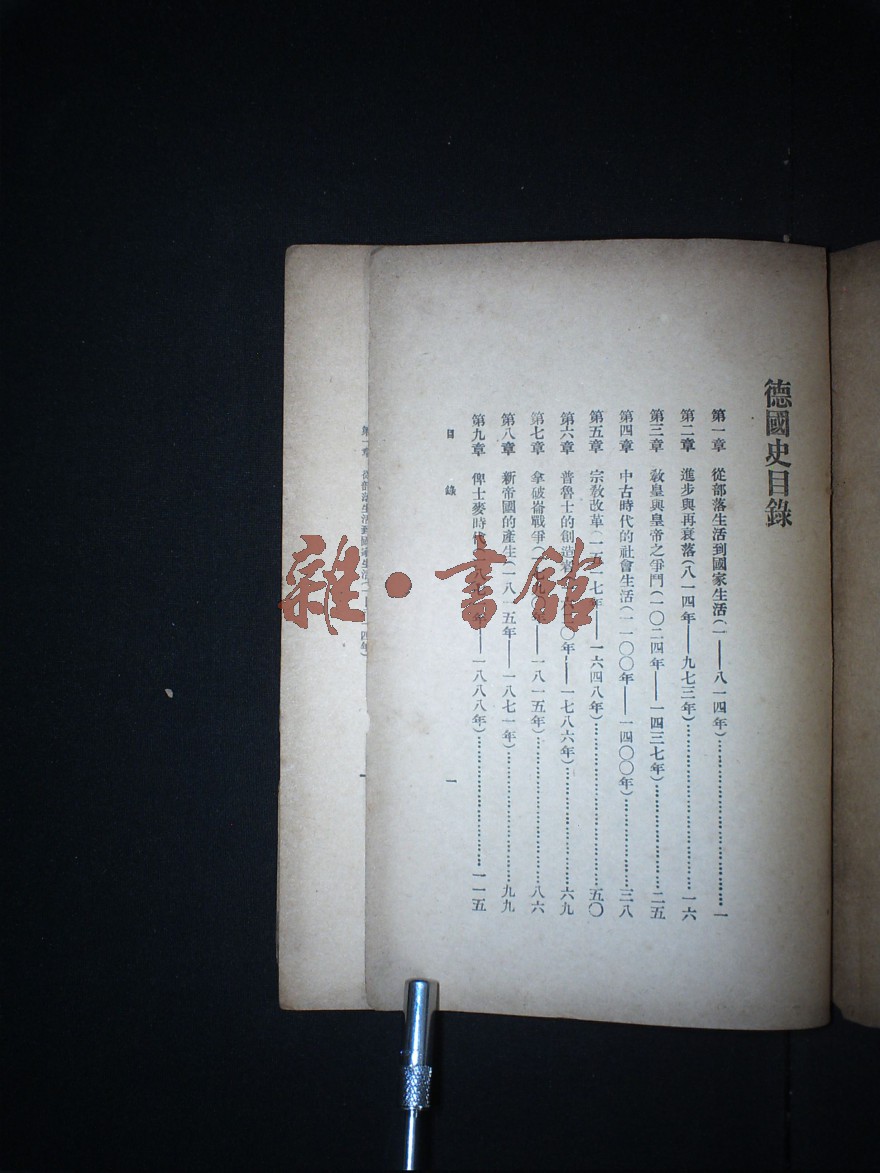 德國史目錄
第一章 從部落生活到國家生活(一——八一四年)……一
第二章 進步與再衰落(八一四年——九七三年)……一六
第三章 敎皇與皇帝之爭鬥(一〇二四年——一四三七年)……二五
第四章 中古時代的社會生活(一一〇〇年——一四〇〇年)……三八
第五章 宗敎改革(一五一七年——一六四八年)……五〇
第六章 普魯士的創造 六 〇年——一七八六年)……六九
第七章 拿破崙戰爭(一七九〇年——一八一五年)……八六
第八章 新帝國的產生(一八一五年——一八七一年)……九九
第九章 俾士麥時代 一八七一年——一八八八年)……一一五
目 錄
一
雜·書館